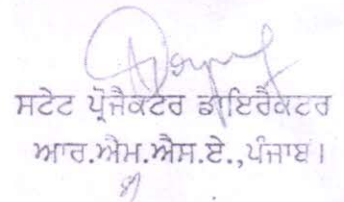 ਸਟੇਟ ਪ੍ਰੋਜੈਕਟਰ ਡਾਇਰੈਕਟਰ
ਆਰ.ਐਮ.ਐਸ.ਏ.,ਪੰਜਾਬ।